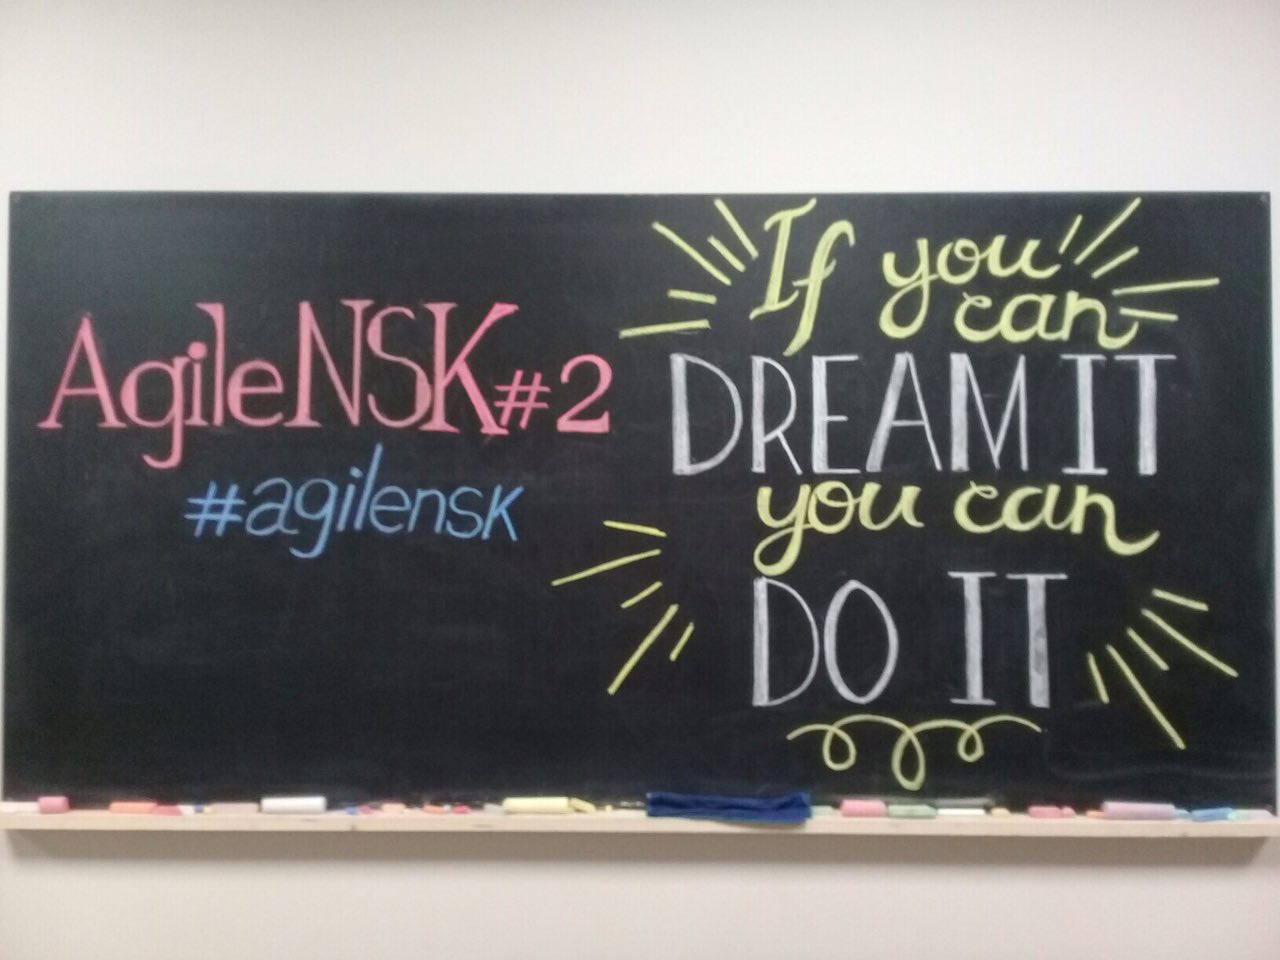 AgileNSK#2
#agilensk
If you
can
DREAM IT
you can
DO IT